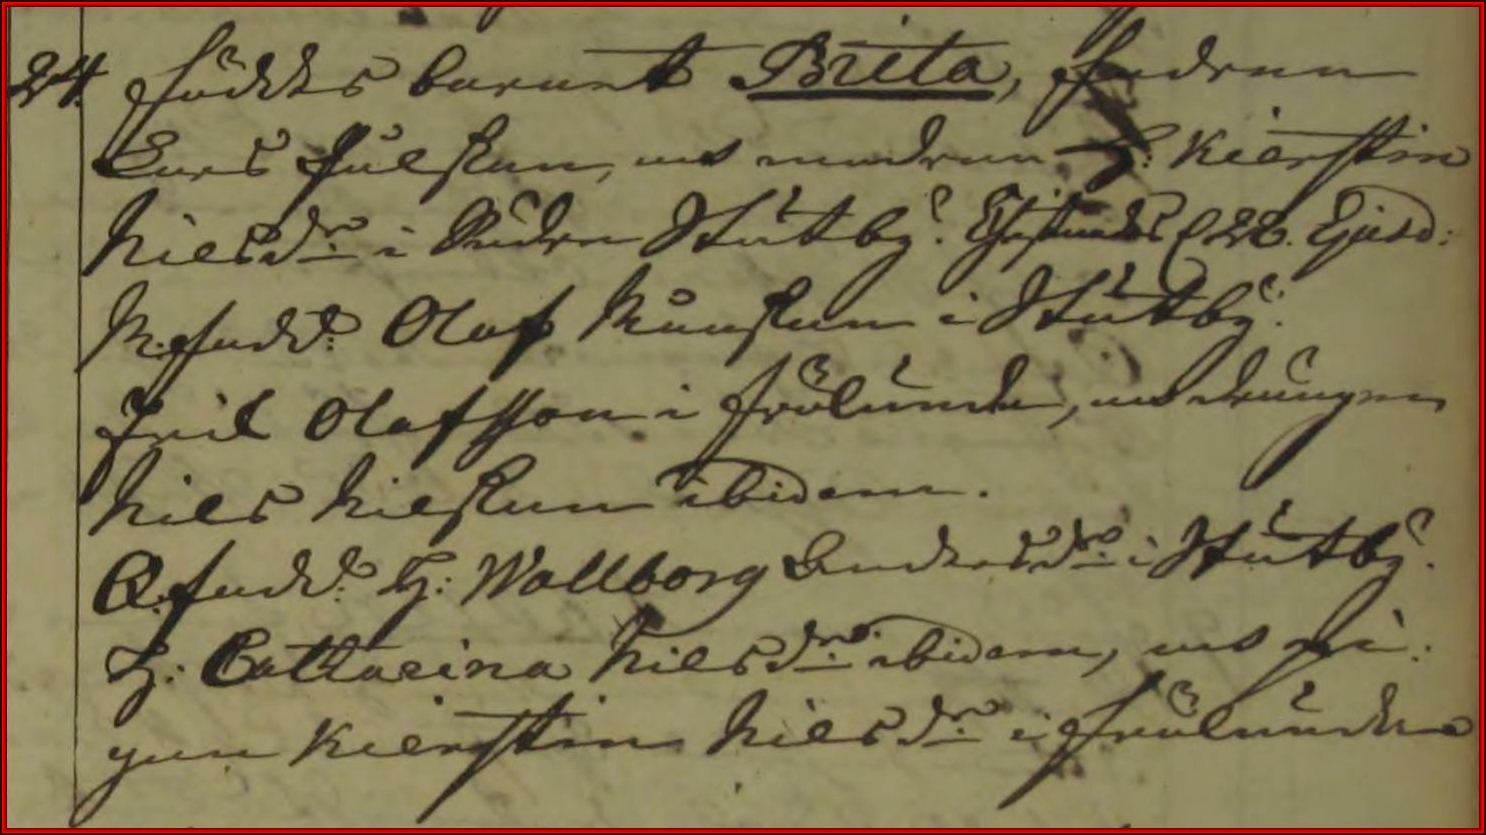 24. föddes barnet Brita, fadren
Lars Juhlsson, och modren H: Kierstin
Nilsdr: i Södra Stutby. Christnades d 28. Ejusd:
M.fadd: Olof Månsson i Stutby.
Eric Olofsson i Frölunda, och drängen
Nils Nilsson ibidem.
Q.fadd: H: Wallborg Andersdr: i Stutby.
H: Cattarina Nilsdr: ibidem, och pi:
gan Kierstin Nilsdr: i Frölunda